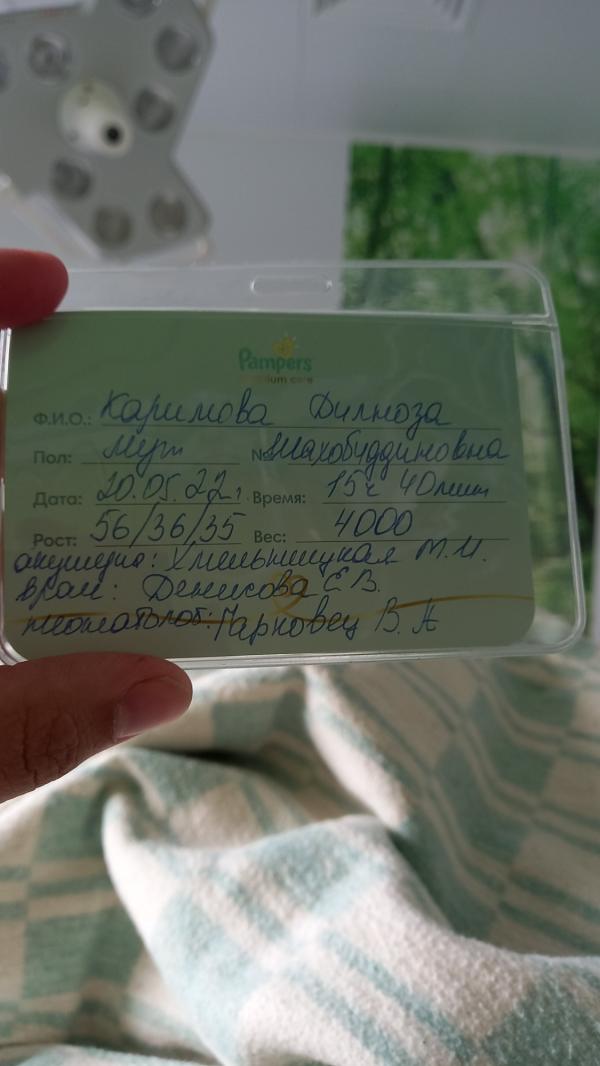 Pampers
premium care
Ф.И.О.: Каримова Дилноза
Пол: муж № Шахобуддиновна
Дата: 20.05.22г. Время: 15ч 40мин
Рост: 56/36/35 Вес: 4000
акушерка: Хмельницкая М.И.
врач: Денисова Е В.
неонатолог: Гарновец В. А